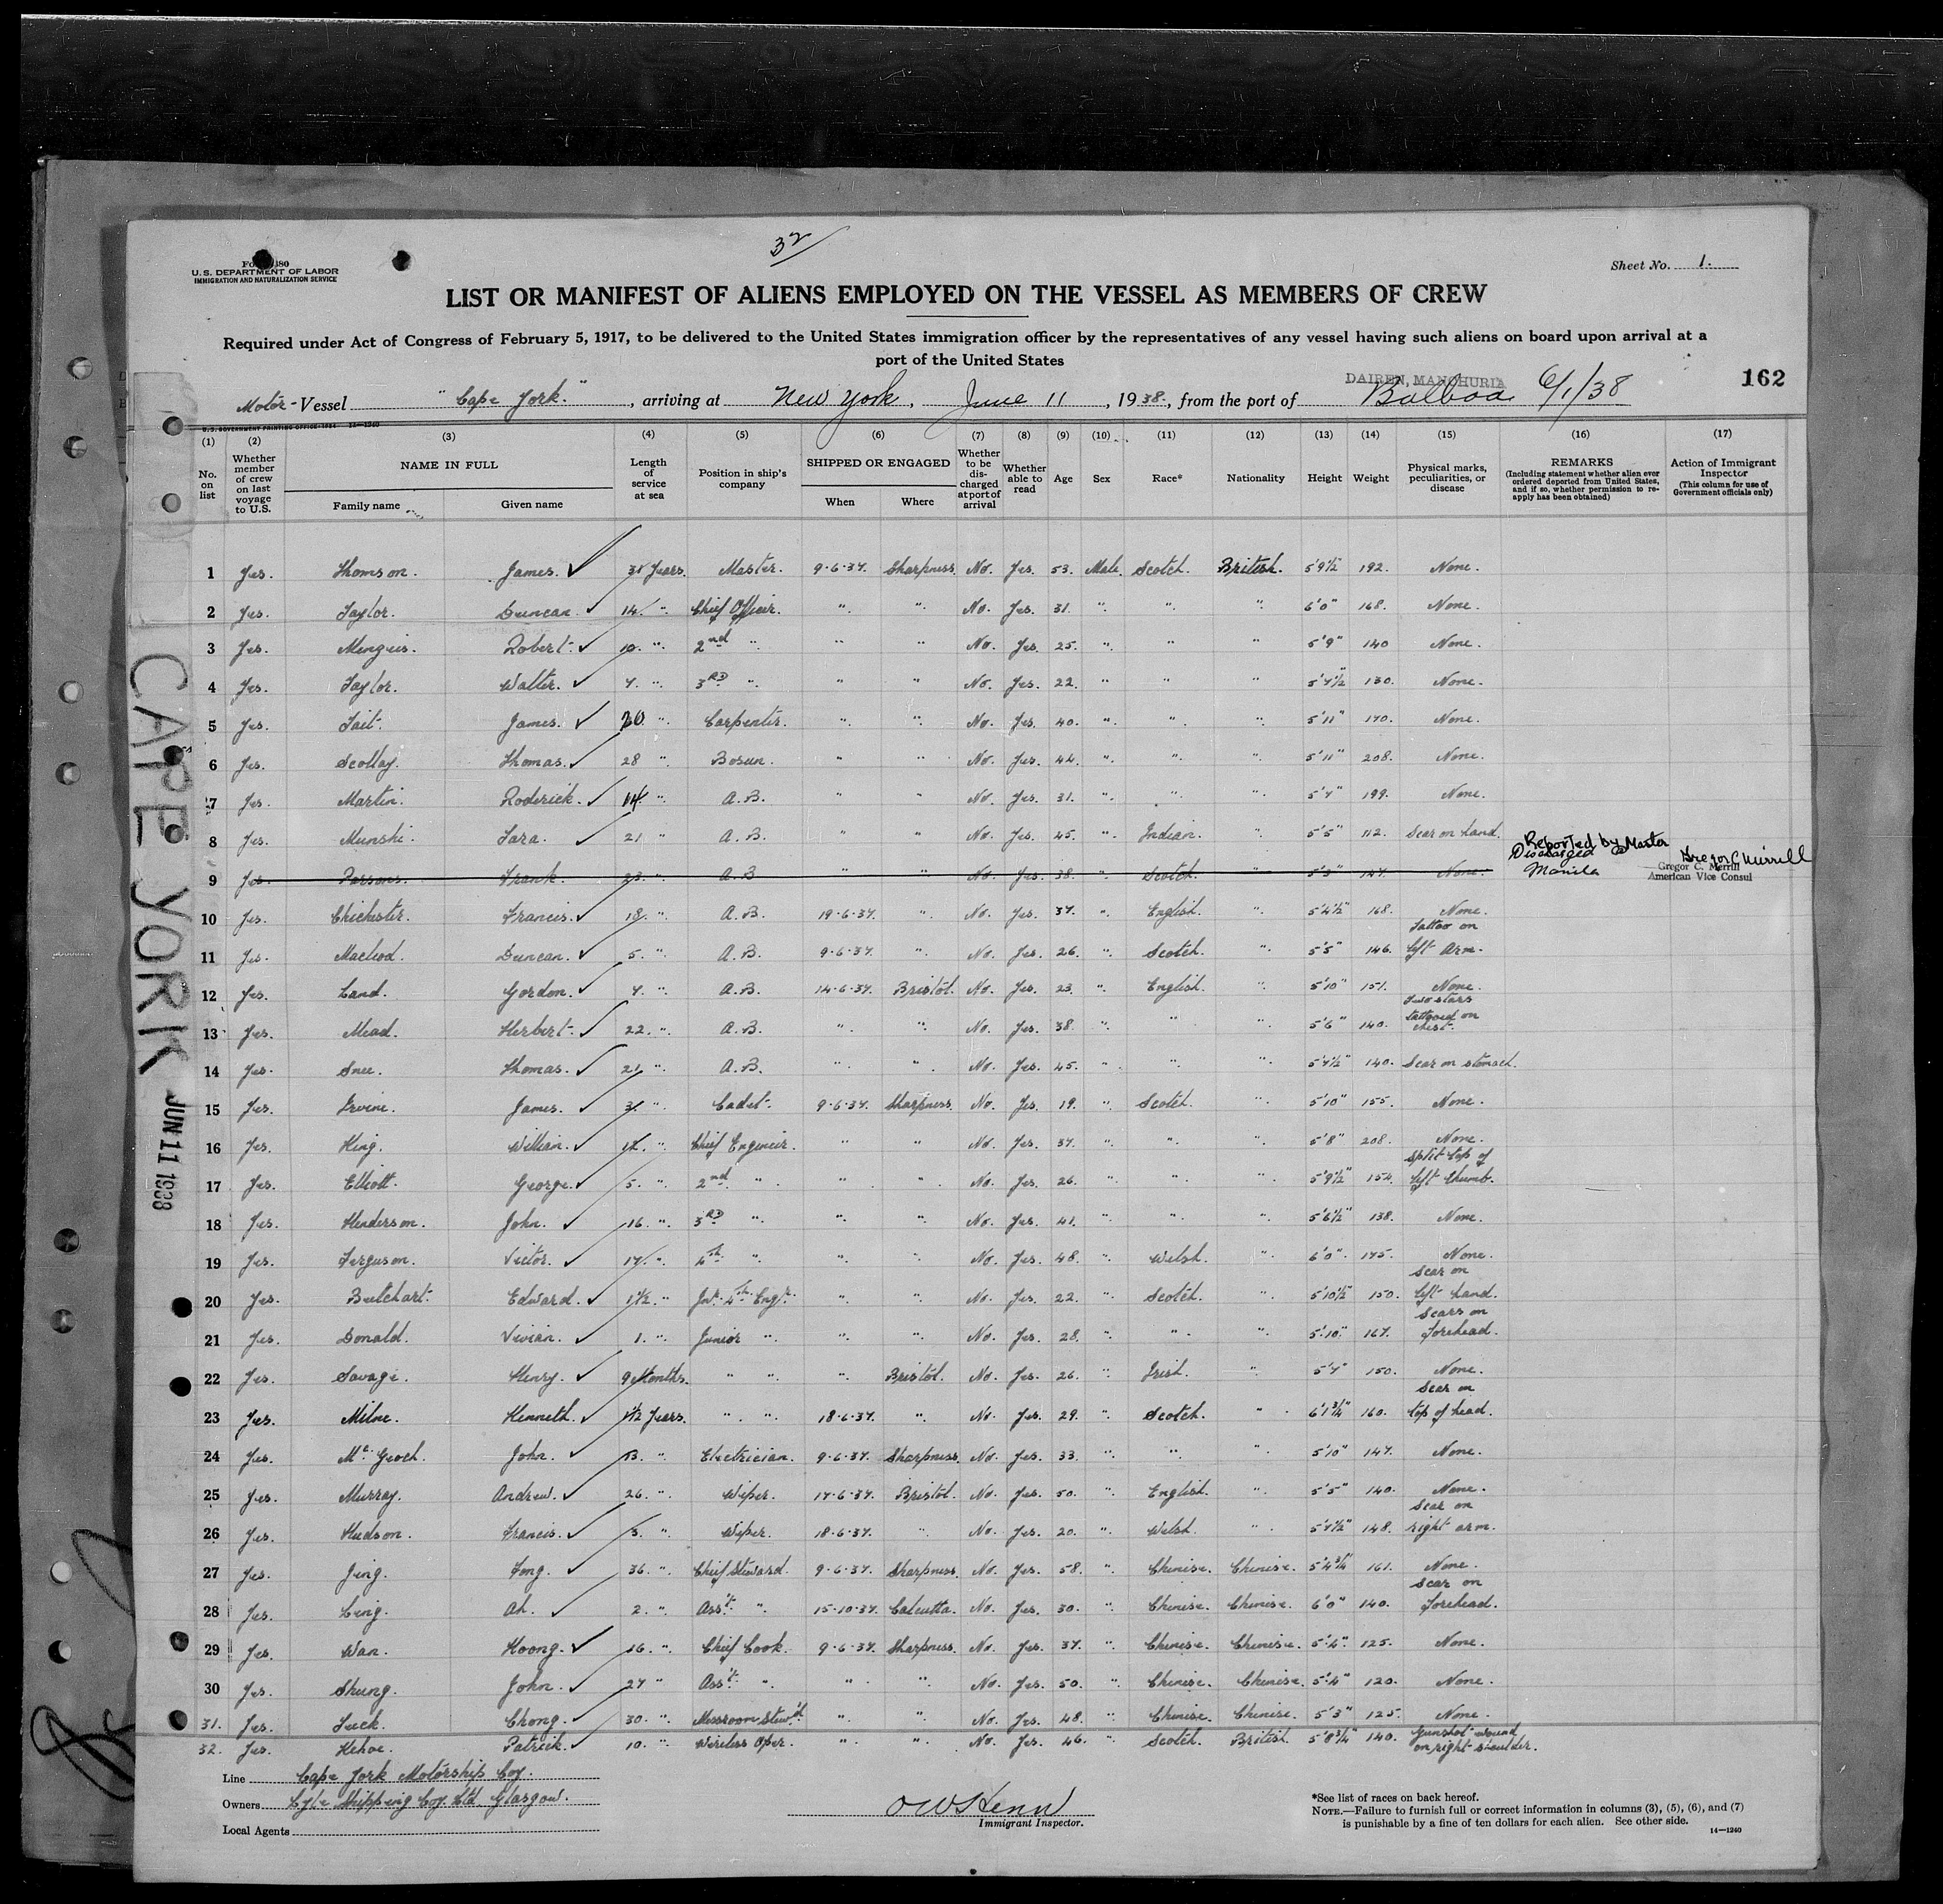 32
Form 680
U. S. DEPARTMENT OF LABOR
IMMIGRATION AND NATURALIZATION SERVICE
Sheet No. 1.
LIST OR MANIFEST OF ALIENS EMPLOYED ON THE VESSEL AS MEMBERS OF CREW
Required under Act of Congress of February 5, 1917, to be delivered to the United States immigration officer by the representatives of any vessel having such aliens on board upon arrival at a
port of the United States
DAIREN, MANCHURIA
162
Motor-Vessel "Cape York.", arriving at New York, June 11, 1938, from the port of Balboa 6/1/38
U.S. GOVERNMENT PRINTING OFFICE: 1934 14—1240
(1) (2) (3) (4) (5) (6) (7) (8) (9) (10) (11) (12) (13) (14) (15) (16) (17)
No. on list
Whether member of crew on last voyage to U.S.
NAME IN FULL
Family name
Given name
Length of service at sea
Position in ship's company
SHIPPED OR ENGAGED
When
Where
Whether to be discharged at port of arrival
Whether able to read
Age
Sex
Race*
Nationality
Height
Weight
Physical marks, peculiarities, or disease
REMARKS
(Including statement whether alien ever ordered deported from United States, and if so, whether permission to reapply has been obtained)
Action of Immigrant Inspector
(This column for use of Government officials only)
1 Yes. Thomson. James. Years. Master. 9-6-37. Sharpness. No. Yes. 53. Male. Scotch. British. 5'9½ 192. None.
2 Yes. Taylor. Duncan. 14 ". Chief Officer. ". ". No. Yes. 31. ". ". ". 6'0" 168. None.
3 Yes. Menzies. Robert. 10. ". 2nd " " " No. Yes. 25. ". " " 5'9" 140 None.
4 Yes. Taylor. Walter. 7. ". 3RD ". " " No. Yes. 22. " " " 5'7½ 130. None.
5 Yes. Tait. James. 20 ". Carpenter. ". ". No. Yes. 40. ". ". ". 5'11" 170. None.
6 Yes. Scollay. Thomas. 28 ". Bosun. " " No. Yes. 44. ". ". ". 5'11" 208. None.
7 Yes. Martin. Roderick. 14 ". A.B. " " No. Yes. 31. ". ". ". 5'7" 199. None.
8 Yes. Munshi. Tara. 21 " A.B. " " No. Yes. 45. ". Indian. ". 5'5" 112. Scar on hand.
9 Yes. Parsons. Frank. 23. " A.B " " No. Yes. 38. " Scotch. " 5'3" 147. None. Reported by Master Discharged @ Manila Gregor C Merrill
Gregor C. Merrill
American Vice Consul
10 Yes. Chichester. Francis. 18. ". A.B. 19-6-37. ". No. Yes. 37. ". English. ". 5'4½" 168. None.
11 Yes. Macleod. Duncan. 5. ". A.B. 9-6-37. " No. Yes. 26. ". Scotch. ". 5'5" 146. Tattoo on left arm.
12 Yes. Land. Gordon. 7. ". A.B. 14-6-37. Bristol. No. Yes. 23. ". English. ". 5'10" 151. None.
13 Yes. Mead. Herbert. 22. ". A.B. ". ". No. Yes. 38. ". " ". 5'6" 140. Two stars tattooed on chest.
14 Yes. Snee. Thomas. 21. ". A.B. ". ". No. Yes. 45. " ". ". 5'7½" 140. Scar on stomach.
15 Yes. Irvine. James. 3. ". Cadet. 9-6-37. Sharpness. No. Yes. 19. ". Scotch. ". 5'10" 155. None.
16 Yes. King. William. ". Chief Engineer. " " No. Yes. 37. ". ". ". 5'8" 208. None.
17 Yes. Elliott. George. 5. ". 2nd ". ". ". No. Yes. 26. ". " ". 5'9½" 154. Split top of left thumb.
18 Yes. Henderson. John. 16. ". 3RD ". ". ". No. Yes. 41. ". ". ". 5'6½" 138. None.
19 Yes. Ferguson. Victor. 17. ". 4th " ". ". No. Yes. 48. ". Welsh. ". 6'0". 175. None.
20 Yes. Butchart. Edward. 1½. " Jnr. 4th Engr. ". ". No. Yes. 22. ". Scotch. ". 5'10½" 150. Scar on left hand.
21 Yes. Donald. Vivian. 1. ". Junior ". ". ". No. Yes. 28. ". ". ". 5'10" 167. Scars on forehead.
22 Yes. Savage. Henry. 9 Months. " ". ". Bristol. No. Yes. 26. ". Irish. ". 5'7" 150. None.
23 Yes. Milne. Kenneth. 1½ Years. ". ". 18-6-37. ". No. Yes. 29. ". Scotch. ". 6'1¾" 160. Scar on top of head.
24 Yes. Mc Geoch. John. 13. ". Electrician. 9-6-37. Sharpness. No. Yes. 33. ". ". ". 5'10" 147. None.
25 Yes. Murray. Andrew. 26. ". Wiper. 17-6-37. Bristol. No. Yes. 50. ". English. ". 5'5" 140. None.
26 Yes. Hudson. Francis. 3. ". Wiper. 18-6-37. ". No. Yes. 20. ". Welsh. ". 5'7½" 148. Scar on right arm.
27 Yes. Jing. Fong. 36. ". Chief Steward. 9-6-37. Sharpness. No. Yes. 58. ". Chinese. Chinese. 5'4¾" 161. None.
28 Yes. Ling. Ah. 2. ". Ass't. ". 15-10-37. Calcutta. No. Yes. 30. ". Chinese. Chinese. 6'0" 140. Scar on forehead.
29 Yes. Wan. Koong. 16. ". Chief Cook. 9-6-37. Sharpness. No. Yes. 37. ". Chinese. Chinese. 5'4" 125. None.
30 Yes. Shung. John. 27 " Ass't. ". ". " No. Yes. 50. ". Chinese. Chinese. 5'4" 120. None.
31. Yes. Luck. Chong. 30. ". Messroom Stew'd. ". ". No. Yes. 48. ". Chinese. Chinese. 5'3" 125. None.
32. Yes. Kehoe. Patrick. 10. " Wireless Oper. ". ". No. Yes. 46. ". Scotch. British. 5'8¾" 140. Gunshot wound on right shoulder.
CAPE YORK
JUN 11 1938
Line Cape York Motorship Coy.
Owners Lyle Shipping Coy. Ltd. Glasgow.
Local Agents
Immigrant Inspector.
*See list of races on back hereof.
NOTE.—Failure to furnish full or correct information in columns (3), (5), (6), and (7)
is punishable by a fine of ten dollars for each alien. See other side.
14—1240